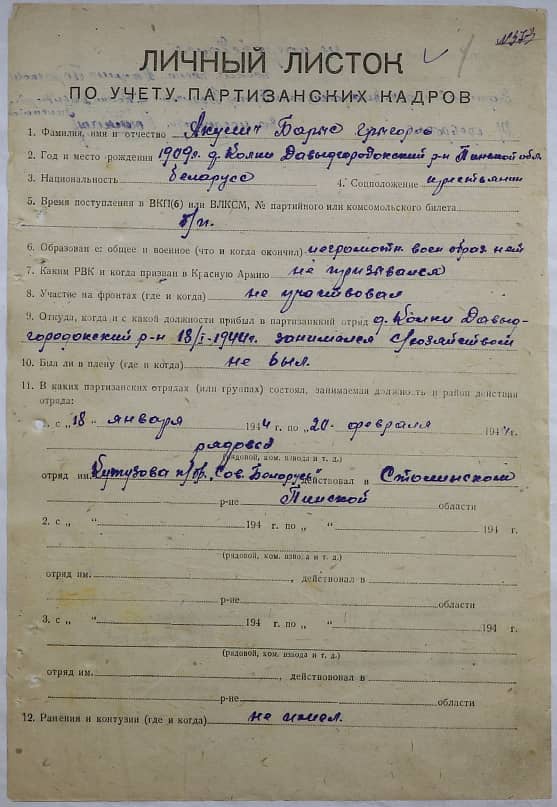 №373
ЛИЧНЫЙ ЛИСТОК
ПО УЧЕТУ ПАРТИЗАНСКИХ КАДРОВ
1. Фамилия, имя и отчество Акулич Барыс Грыгоров
2. Год и место рождения 1909г. д. Колки Давыдгородокский р-н Пинской обл.
3. Национальность белорусс 4. Соцположение крестьянин
5. Время поступления в ВКП(б) или ВЛКСМ, № партийного или комсомольского билета
б/п.
6. Образование: общее и военное (что и когда окончил) неграмотн. воен. образ. ней
7. Каким РВК и когда призван в Красную Армию не призывался
8. Участие на фронтах (где и когда) не участвовал
9. Откуда, когда и с какой должности прибыл в партизанский отряд д. Колки Давыд-
городокский р-н 18/I-1944г. занимался хозяйством
10. Был ли в плену (где и когда) не был.
11. В каких партизанских отрядах (или группах) состоял, занимаемая должность и район действия
отряда:
1. с „18„ января 1944 г. по „20„ февраля 1944 г.
рядовой
(рядовой, ком. взвода и т. д.)
отряд им. Кутузова п/бр. „Сов. Белорусь" действовал в Столинском
р-не Пинской области
2. с „ “ 194 г. по „ “ 194 г.
(рядовой, ком. взвода и т. д.)
отряд им. , действовал в
р-не области
3. с „ “ 194 г. по „ “ 194 г.
(рядовой, ком. взвода и т. д.)
отряд им. , действововал в
р-не области
12. Ранения и контузии (где и когда) не имел.